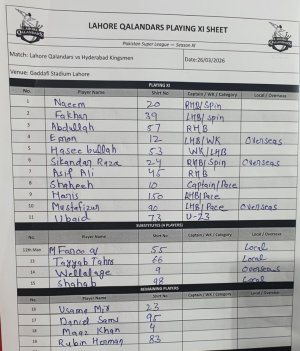 QALANDARS
LAHORE QALANDARS PLAYING XI SHEET
Pakistan Super League — Season XI
Match: Lahore Qalandars vs Hyderabad Kingsmen Date: 26/03/2026
Venue: Gaddafi Stadium Lahore
PLAYING XI
No. Player Name Shirt No Captain / WK / Category Local / Overseas
1 Naeem 20 RHB/Spin
2 Fakhar 39 LHB/Spin
3 Abdullah 57 RHB
4 Emon 12 LHB/WK Overseas
5 Haseebullah 53 WK/LHB
6 Sikandar Raza 24 RHB/Spin Overseas
7 Asif Ali 45 RHB
8 Shaheen 10 Captain/Pace
9 Haris 150 RHB/Pace
10 Mustafizur 90 LHB/Pace Overseas
11 Ubaid 73 U-23
SUBSTITUTES (4 PLAYERS)
No. Player Name Shirt No Captain / WK / Category Local / Overseas
12th Man M Farooq 55 Local
13 Tayyab Tahir 66 Local
14 Wellalage 9 Overseas
15 Shahab 98 Local
REMAINING PLAYERS
No. Player Name Shirt No Captain / WK / Category Local / Overseas
16 Usama Mir 23
17 Daniel Sams 95
18 Maaz Khan 4
19 Rubin Herman 83